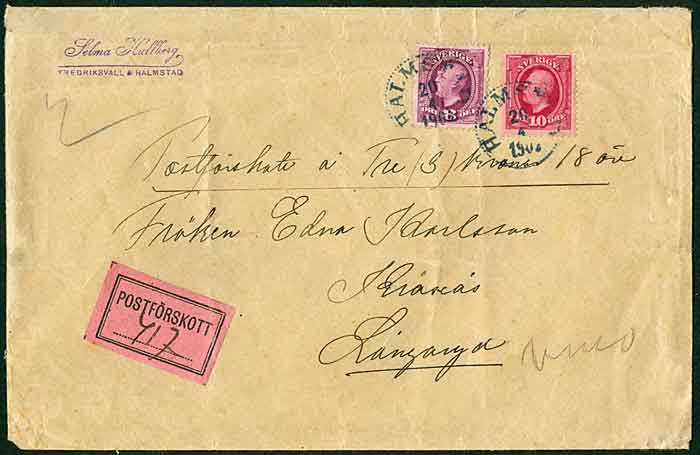 Selma Hallberg
FREDRIKSVALL & HALMSTAD
SVERIGE
8 ÖRE
SVERIGE
10 ÖRE
HALMSTAD
20
4
190
HALMSTAD
20
4
1902
Postförskott à Tre (3) kronor 18 öre
Fröken Edna Karlsson
Långaryd
POSTFÖRSKOTT
417